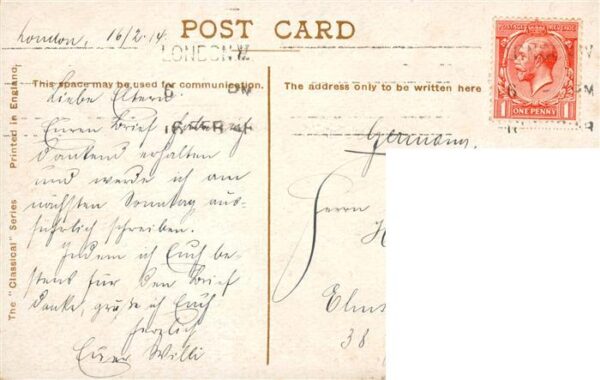 London, 16/2.14.
POST CARD
LONDON.W.
6 PM
16 FEB 14
This space may be used for communication.
The address only to be written here
POSTAGE REVENUE
1 1
ONE PENNY
Printed in England.
The "Classical" Series
Liebe Eltern!
Euren Brief
dankend erhalten
und werde ich am
nächsten Sonntag aus-
führlich schreiben.
Indem ich Euch be-
stens für den Brief
danke, grüße ich Euch
herzlich
Euer Willi
Germany.
Herrn
H
Elms
38